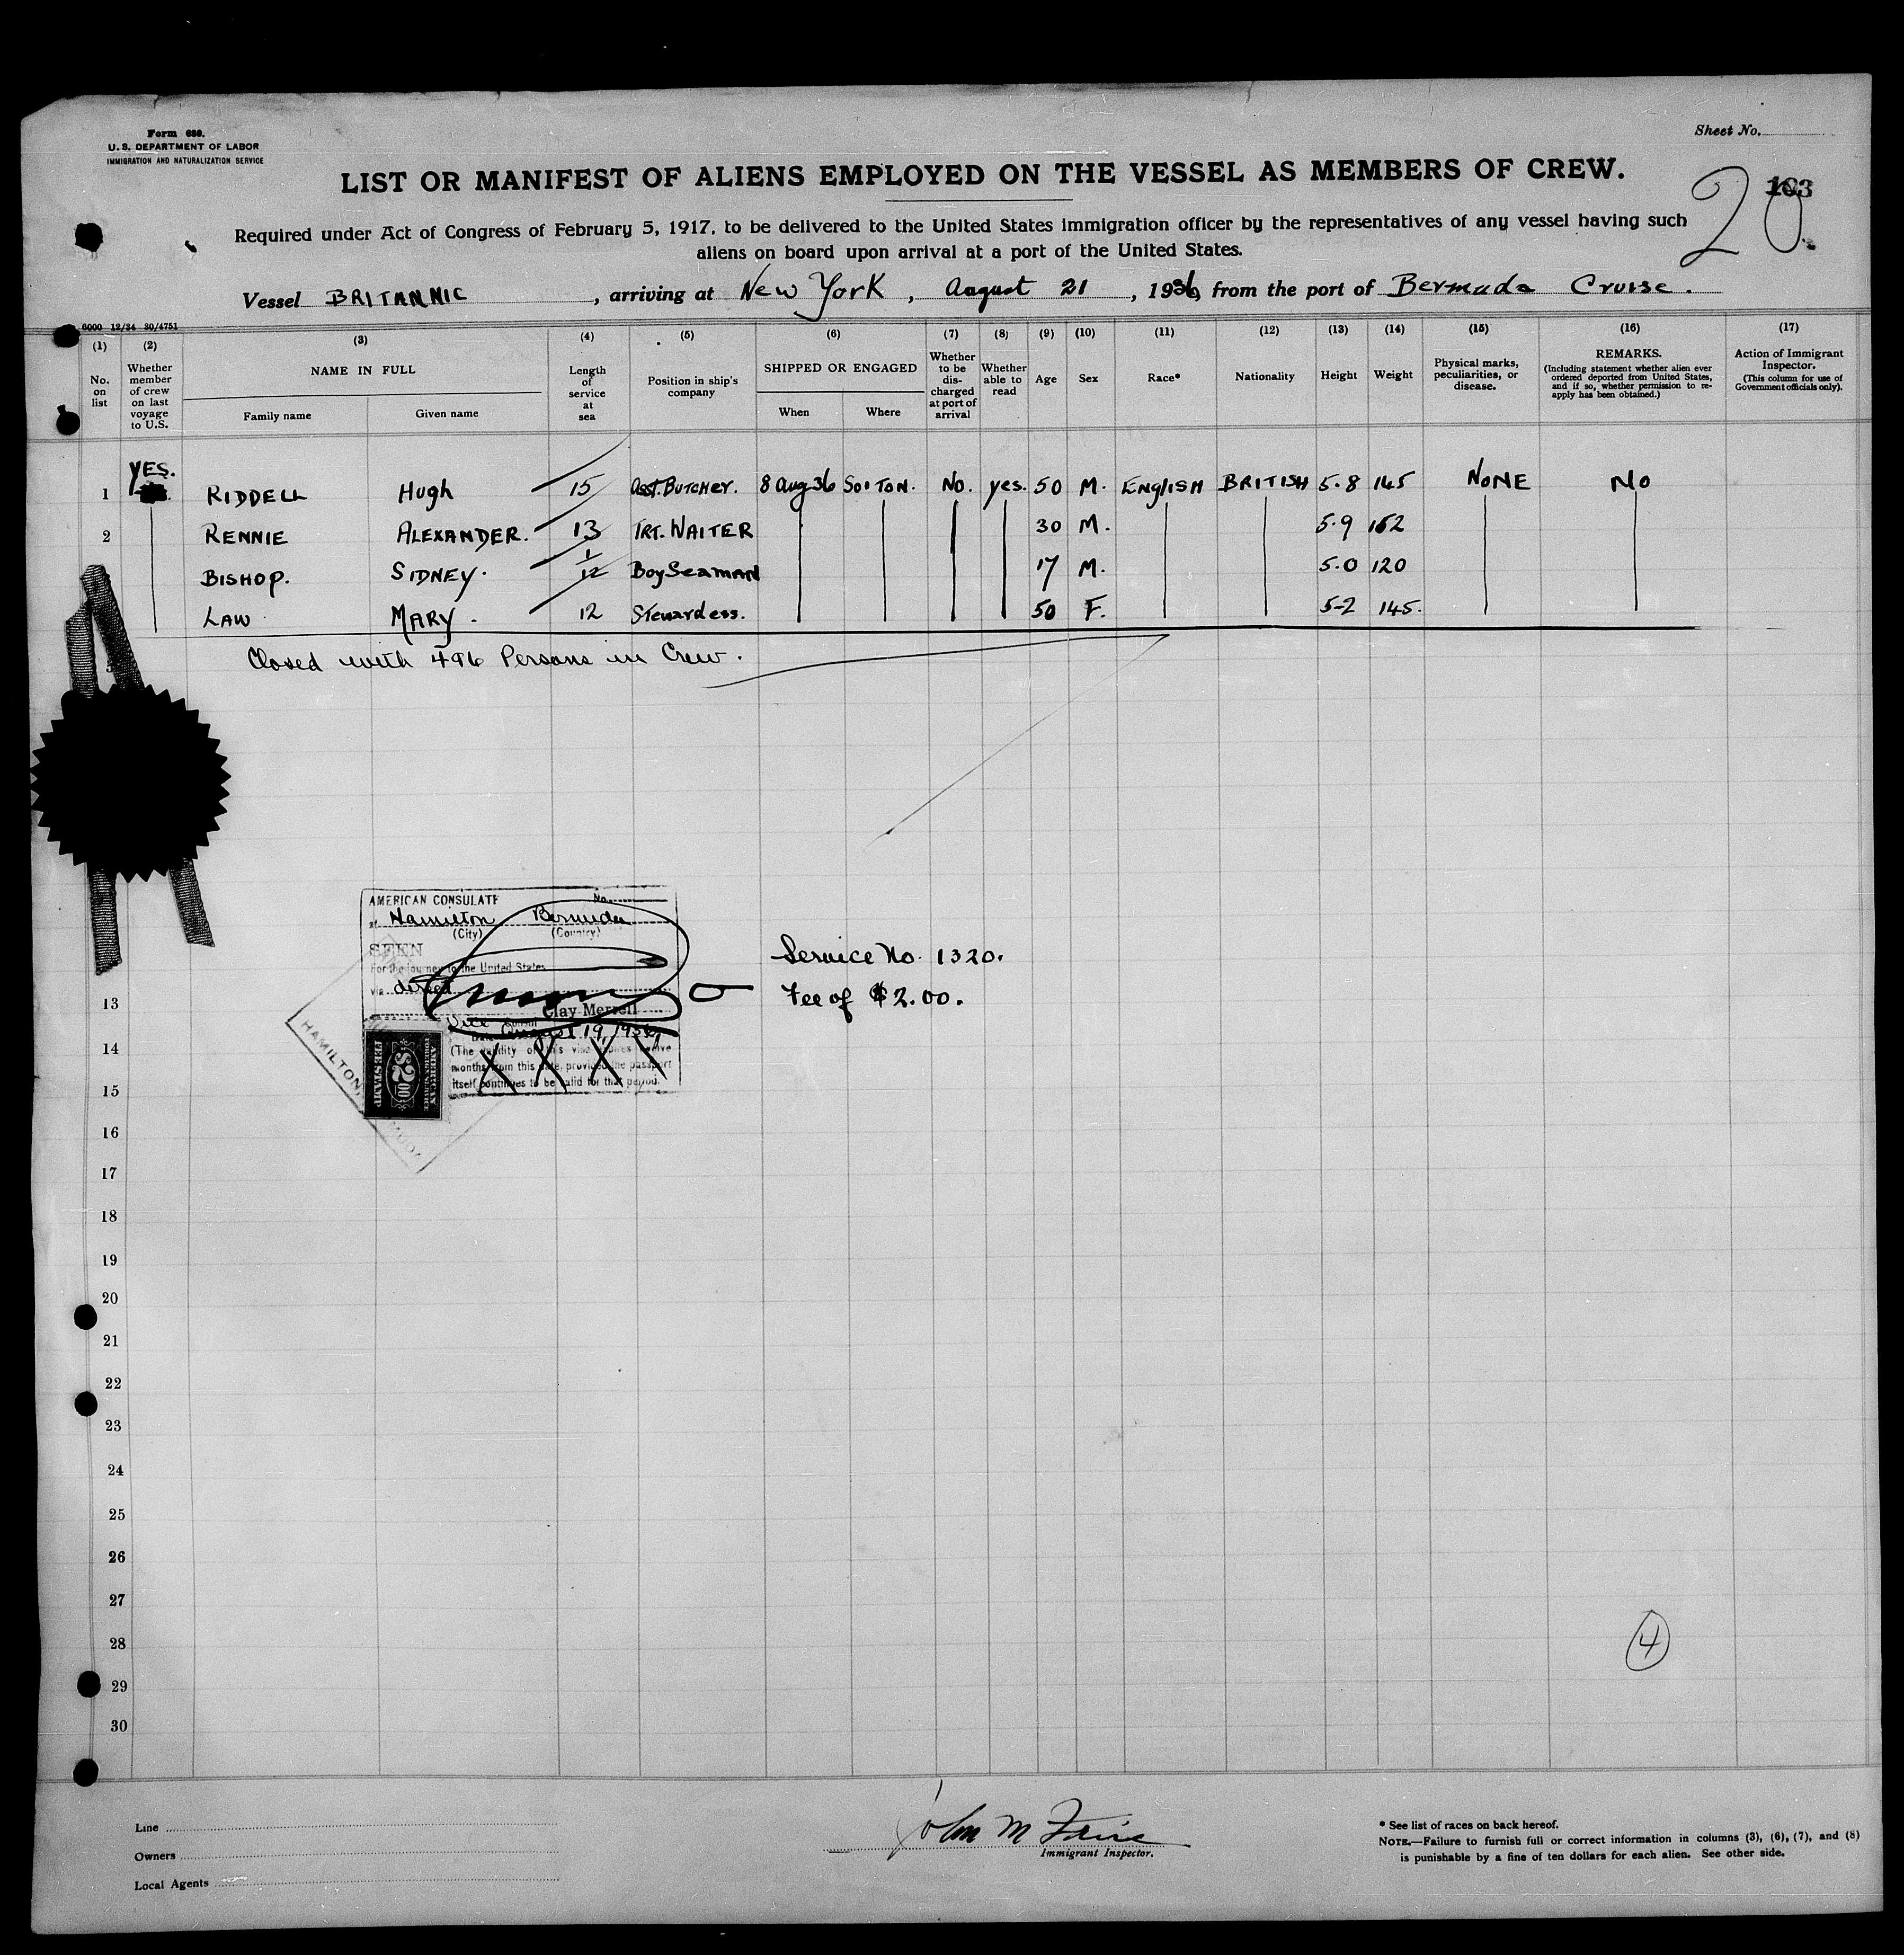 Form 680.
U. S. DEPARTMENT OF LABOR
IMMIGRATION AND NATURALIZATION SERVICE
Sheet No.
LIST OR MANIFEST OF ALIENS EMPLOYED ON THE VESSEL AS MEMBERS OF CREW.
20
103
Required under Act of Congress of February 5, 1917, to be delivered to the United States immigration officer by the representatives of any vessel having such
aliens on board upon arrival at a port of the United States.
Vessel BRITANNIC, arriving at New York, August 21, 1936, from the port of Bermuda Cruise.
6000 12/34 30/4751
(1) (2) (3) (4) (5) (6) (7) (8) (9) (10) (11) (12) (13) (14) (15) (16) (17)
No. on list
Whether member of crew on last voyage to U.S.
NAME IN FULL
Family name
Given name
Length of service at sea
Position in ship's company
SHIPPED OR ENGAGED
When
Where
Whether to be discharged at port of arrival
Whether able to read
Age
Sex
Race*
Nationality
Height
Weight
Physical marks, peculiarities, or disease.
REMARKS.
(Including statement whether alien ever ordered deported from United States, and if so, whether permission to re-apply has been obtained.)
Action of Immigrant Inspector.
(This column for use of Government officials only).
YES.
1 RIDDELL Hugh 15 Asst. BUTCHER. 8 Aug 36 SO'TON. No. yes. 50 M. ENglISH BRITISH 5.8 145 NONE No
2 RENNIE ALEXANDER. 13 TRT. WAITER 30 M. 5.9 152
BISHOP. SIDNEY. 1/12 Boy SEAMAN 17 M. 5.0 120
LAW MARY. 12 Stewardess. 50 F. 5-2 145.
Closed with 496 Persons in Crew.
AMERICAN CONSULATE No.
at Hamilton Bermuda
(City) (Country)
SEEN
For the journey to the United States
via direct
Clay Merrell
Vice Consul
Date August 19, 1936
(The validity of this visa expires twelve
months from this date, provided the passport
itself continues to be valid for that period.
AMERICAN
FOREIGN SERVICE
$2.00
FEE STAMP
HAMILTON,
Service No. 1320.
Fee of $2.00.
13
14
15
16
17
18
19
20
21
22
23
24
25
26
27
28
29
30
4
Line
Owners
Local Agents
John M
Immigrant Inspector.
* See list of races on back hereof.
NOTE.—Failure to furnish full or correct information in columns (3), (6), (7), and (8)
is punishable by a fine of ten dollars for each alien. See other side.